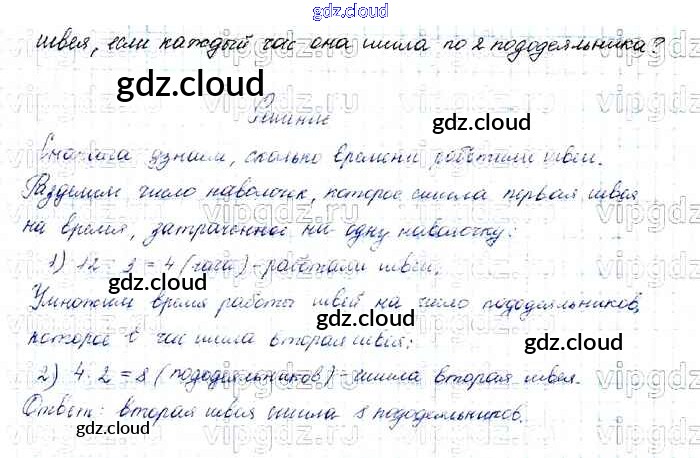 gdz.cloud
швея, если каждый час она шила по 2 пододеяльника?
gdz.cloud
gdz.cloud
Решение
Сначала узнаем, сколько времени работали швеи.
Разделим число наволочек, которое сшила первая швея
на время, затраченное на одну наволочку:
1) 12 : 3 = 4 (часа) - работали швеи.
gdz.cloud
Умножим время работы швей на число пододеяльников,
которое в час шила вторая швея:
gdz.cloud
gdz.cloud
2) 4 · 2 = 8 (пододеяльников) - сшила вторая швея.
gdz.cloud
Ответ: вторая швея сшила 8 пододеяльников.
gdz.cloud